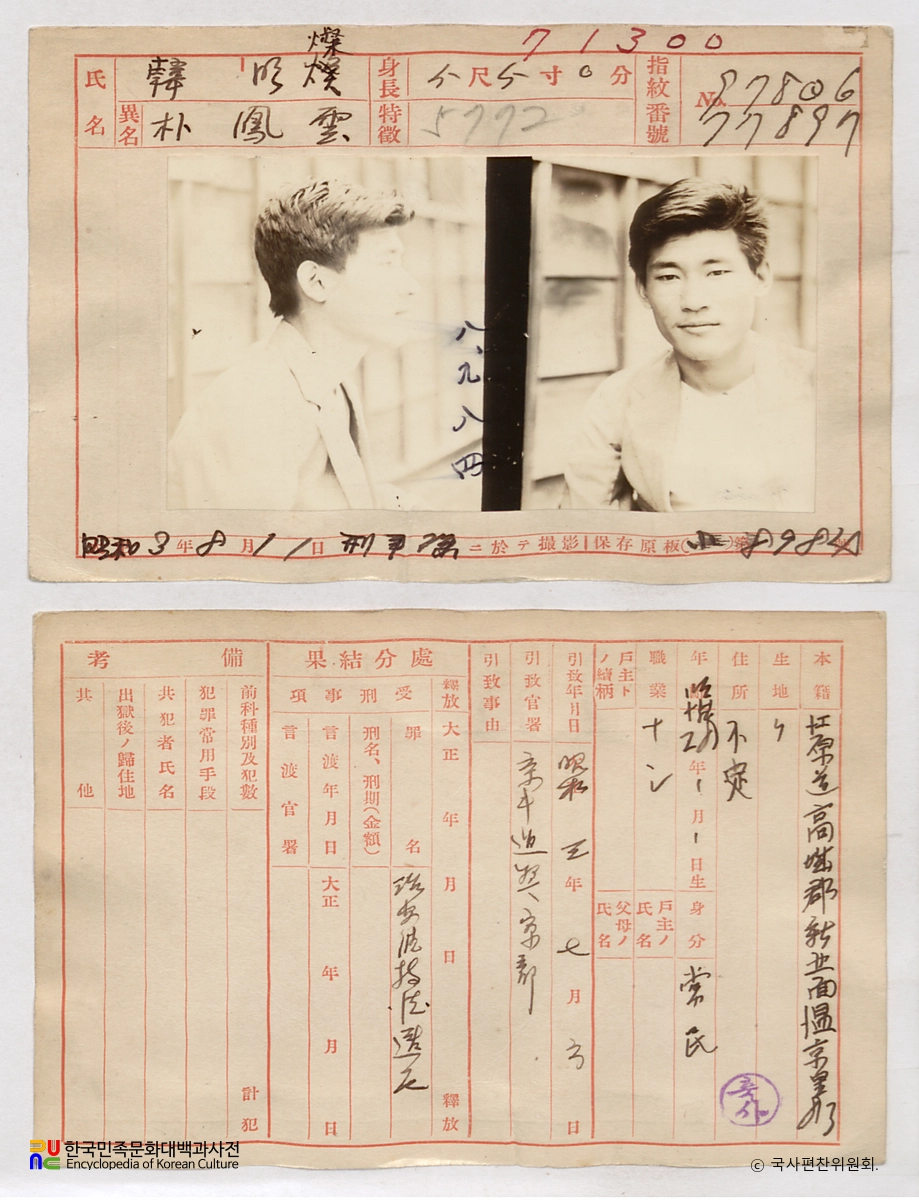 71300
氏名 韓 明 燦 燦
異名 朴 鳳 雲
身長 五尺五寸0分
特徵 5772
指紋番號 No. 87806
77897
八、九八四
昭和3年8月11日 ニ於テ撮影 保存原板 8984
本籍 江原道高城郡新北面溫井里
生地 〃
住所 不定
年 年一月一日生
身分 常民
職業 ナシ
戶主ノ氏名
戶主トノ續柄
父母ノ氏名
引致年月日 昭和 五年 七月 日
引致官署 京畿道警察部
引致事由
處分結果
釋放 大正 年 月 日 釋放
受刑事項
罪名 治安維持法違反
刑名、刑期(金額)
言渡年月日 大正 年 月 日
言渡官署
備考
前科種別及犯數 計 犯
犯罪常用手段
共犯者氏名
出獄後ノ歸住地
其他
한국민족문화대백과사전
Encyclopedia of Korean Culture
© 국사편찬위원회.